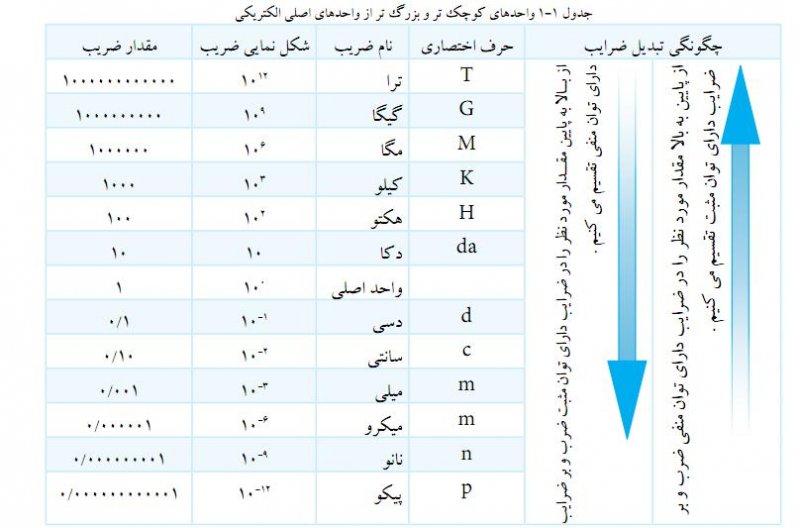 جدول ۱-۱ واحدهای کوچک تر و بزرگ تر از واحدهای اصلی الکتریکی
چگونگی تبدیل ضرایب حرف اختصاری نام ضریب شکل نمایی ضریب مقدار ضریب
T ترا ۱۰^۱۲ ۱۰۰۰۰۰۰۰۰۰۰۰۰
G گیگا ۱۰^۹ ۱۰۰۰۰۰۰۰۰۰
M مگا ۱۰^۶ ۱۰۰۰۰۰۰
K کیلو ۱۰^۳ ۱۰۰۰
H هکتو ۱۰^۲ ۱۰۰
da دکا ۱۰ ۱۰
واحد اصلی ۱۰^۰ ۱
d دسی ۱۰^-۱ ۰/۱
c سانتی ۱۰^-۲ ۰/۱۰
m میلی ۱۰^-۳ ۰/۰۰۱
m میکرو ۱۰^-۶ ۰/۰۰۰۰۰۱
n نانو ۱۰^-۹ ۰/۰۰۰۰۰۰۰۰۱
p پیکو ۱۰^-۱۲ ۰/۰۰۰۰۰۰۰۰۰۰۰۱
از پایین به بالا مقدار مورد نظر را در ضرایب دارای توان منفی ضرب و بر
ضرایب دارای توان مثبت تقسیم می کنیم .
از بالا به پایین مقدار مورد نظر را در ضرایب دارای توان مثبت ضرب و بر ضرایب
دارای توان منفی تقسیم می کنیم .